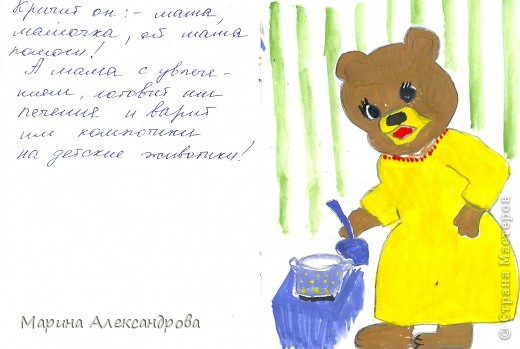 Кричит он:- мама,
мамочка, ой мама
помоги!
А мама с увлече-
нием, готовит им
печения и варит
им компотики
на детские животики!
Марина Александрова
© Страна Мастеров